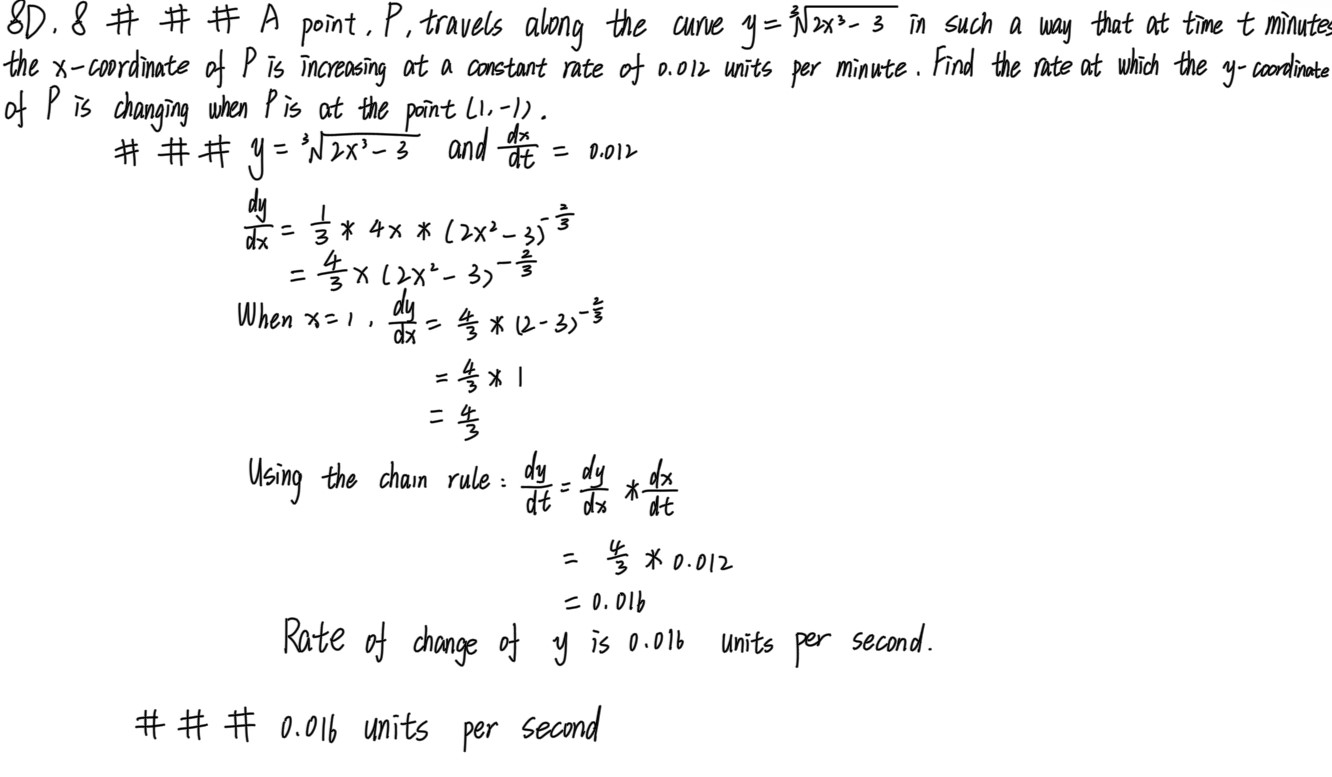 8D.8 # # # A point, P, travels along the curve y = ∛(2x³ - 3) in such a way that at time t minutes
the x-coordinate of P is increasing at a constant rate of 0.012 units per minute. Find the rate at which the y-coordinate
of P is changing when P is at the point (1, -1).
# # # y = ∛(2x³ - 3) and dx/dt = 0.012
dy/dx = 1/3 * 4x * (2x² - 3)^(-2/3)
= 4/3 x (2x² - 3)^(-2/3)
When x = 1, dy/dx = 4/3 * (2 - 3)^(-2/3)
= 4/3 * 1
= 4/3
Using the chain rule: dy/dt = dy/dx * dx/dt
= 4/3 * 0.012
= 0.016
Rate of change of y is 0.016 units per second.
# # # 0.016 units per second